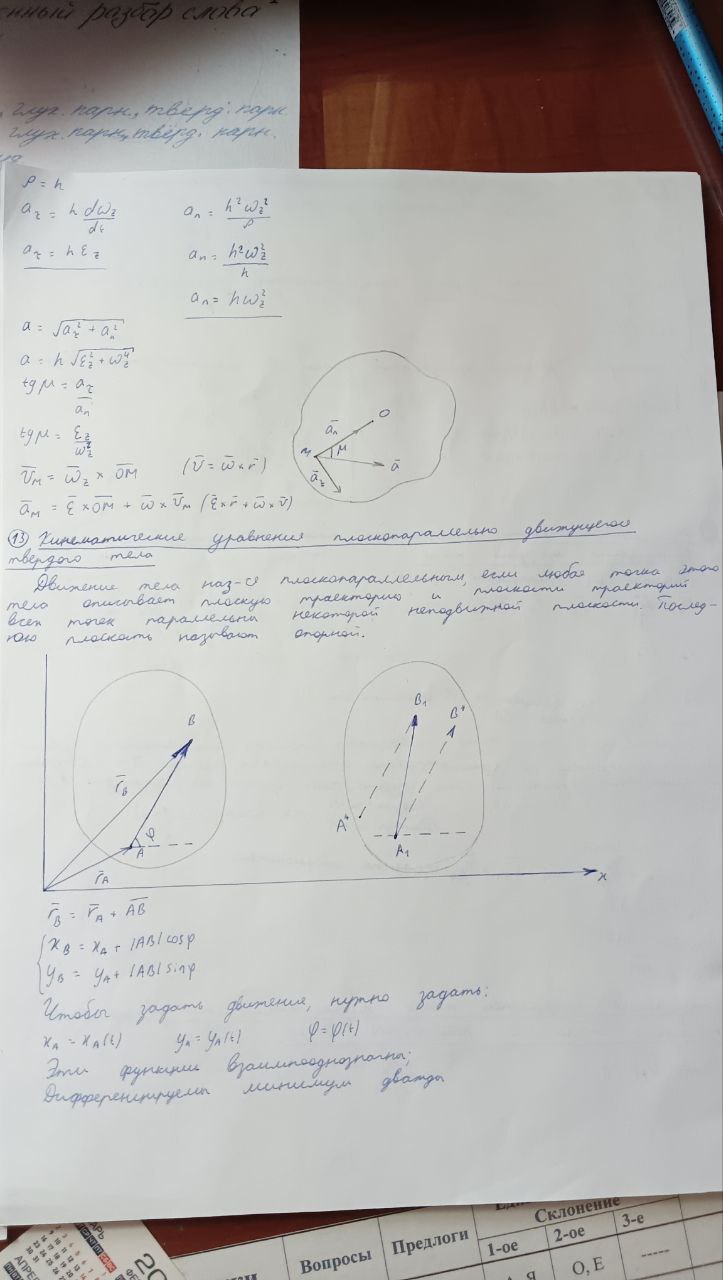 енный разбор слова
глух. парн., твёрд. парн.
глух. парн., твёрд. парн.
ρ = h
a_τ = h dω_z/dt
a_n = h²ω_z²/ρ
a_τ = h ε_z
a_n = h²ω_z²/h
a_n = hω_z²
a = √(a_τ² + a_n²)
a = h √(ε_z² + ω_z⁴)
tg μ = a_τ/a_n
tg μ = ε_z/ω_z²
v̅_M = ω̅_z × O̅M̅ (v̅ = ω̅ × r̅)
a̅_M = ε̅ × O̅M̅ + ω̅ × v̅_M (ε̅ × r̅ + ω̅ × v̅)
O
a̅_n
M
μ
a̅
a̅_τ
13 Кинематические уравнения плоскопараллельно движущегося
твёрдого тела
Движение тела наз-ся плоскопараллельным, если любая точка этого
тела описывает плоскую траекторию и плоскости траекторий
всех точек параллельны некоторой неподвижной плоскости. Послед-
нюю плоскость называют опорной.
B
B₁
B*
r̅_B
φ
A
A*
A₁
r̅_A
x
r̅_B = r̅_A + A̅B̅
x_B = x_A + |AB| cosφ
y_B = y_A + |AB| sinφ
Чтобы задать движение, нужно задать:
x_A = x_A(t) y_A = y_A(t) φ = φ(t)
Эти функции взаимнооднозначны;
Дифференцируемы минимум дважды
Склонение
Вопросы
Предлоги
1-ое
2-ое
3-е
Я
О, Е
-----
АПРЕЛ
20